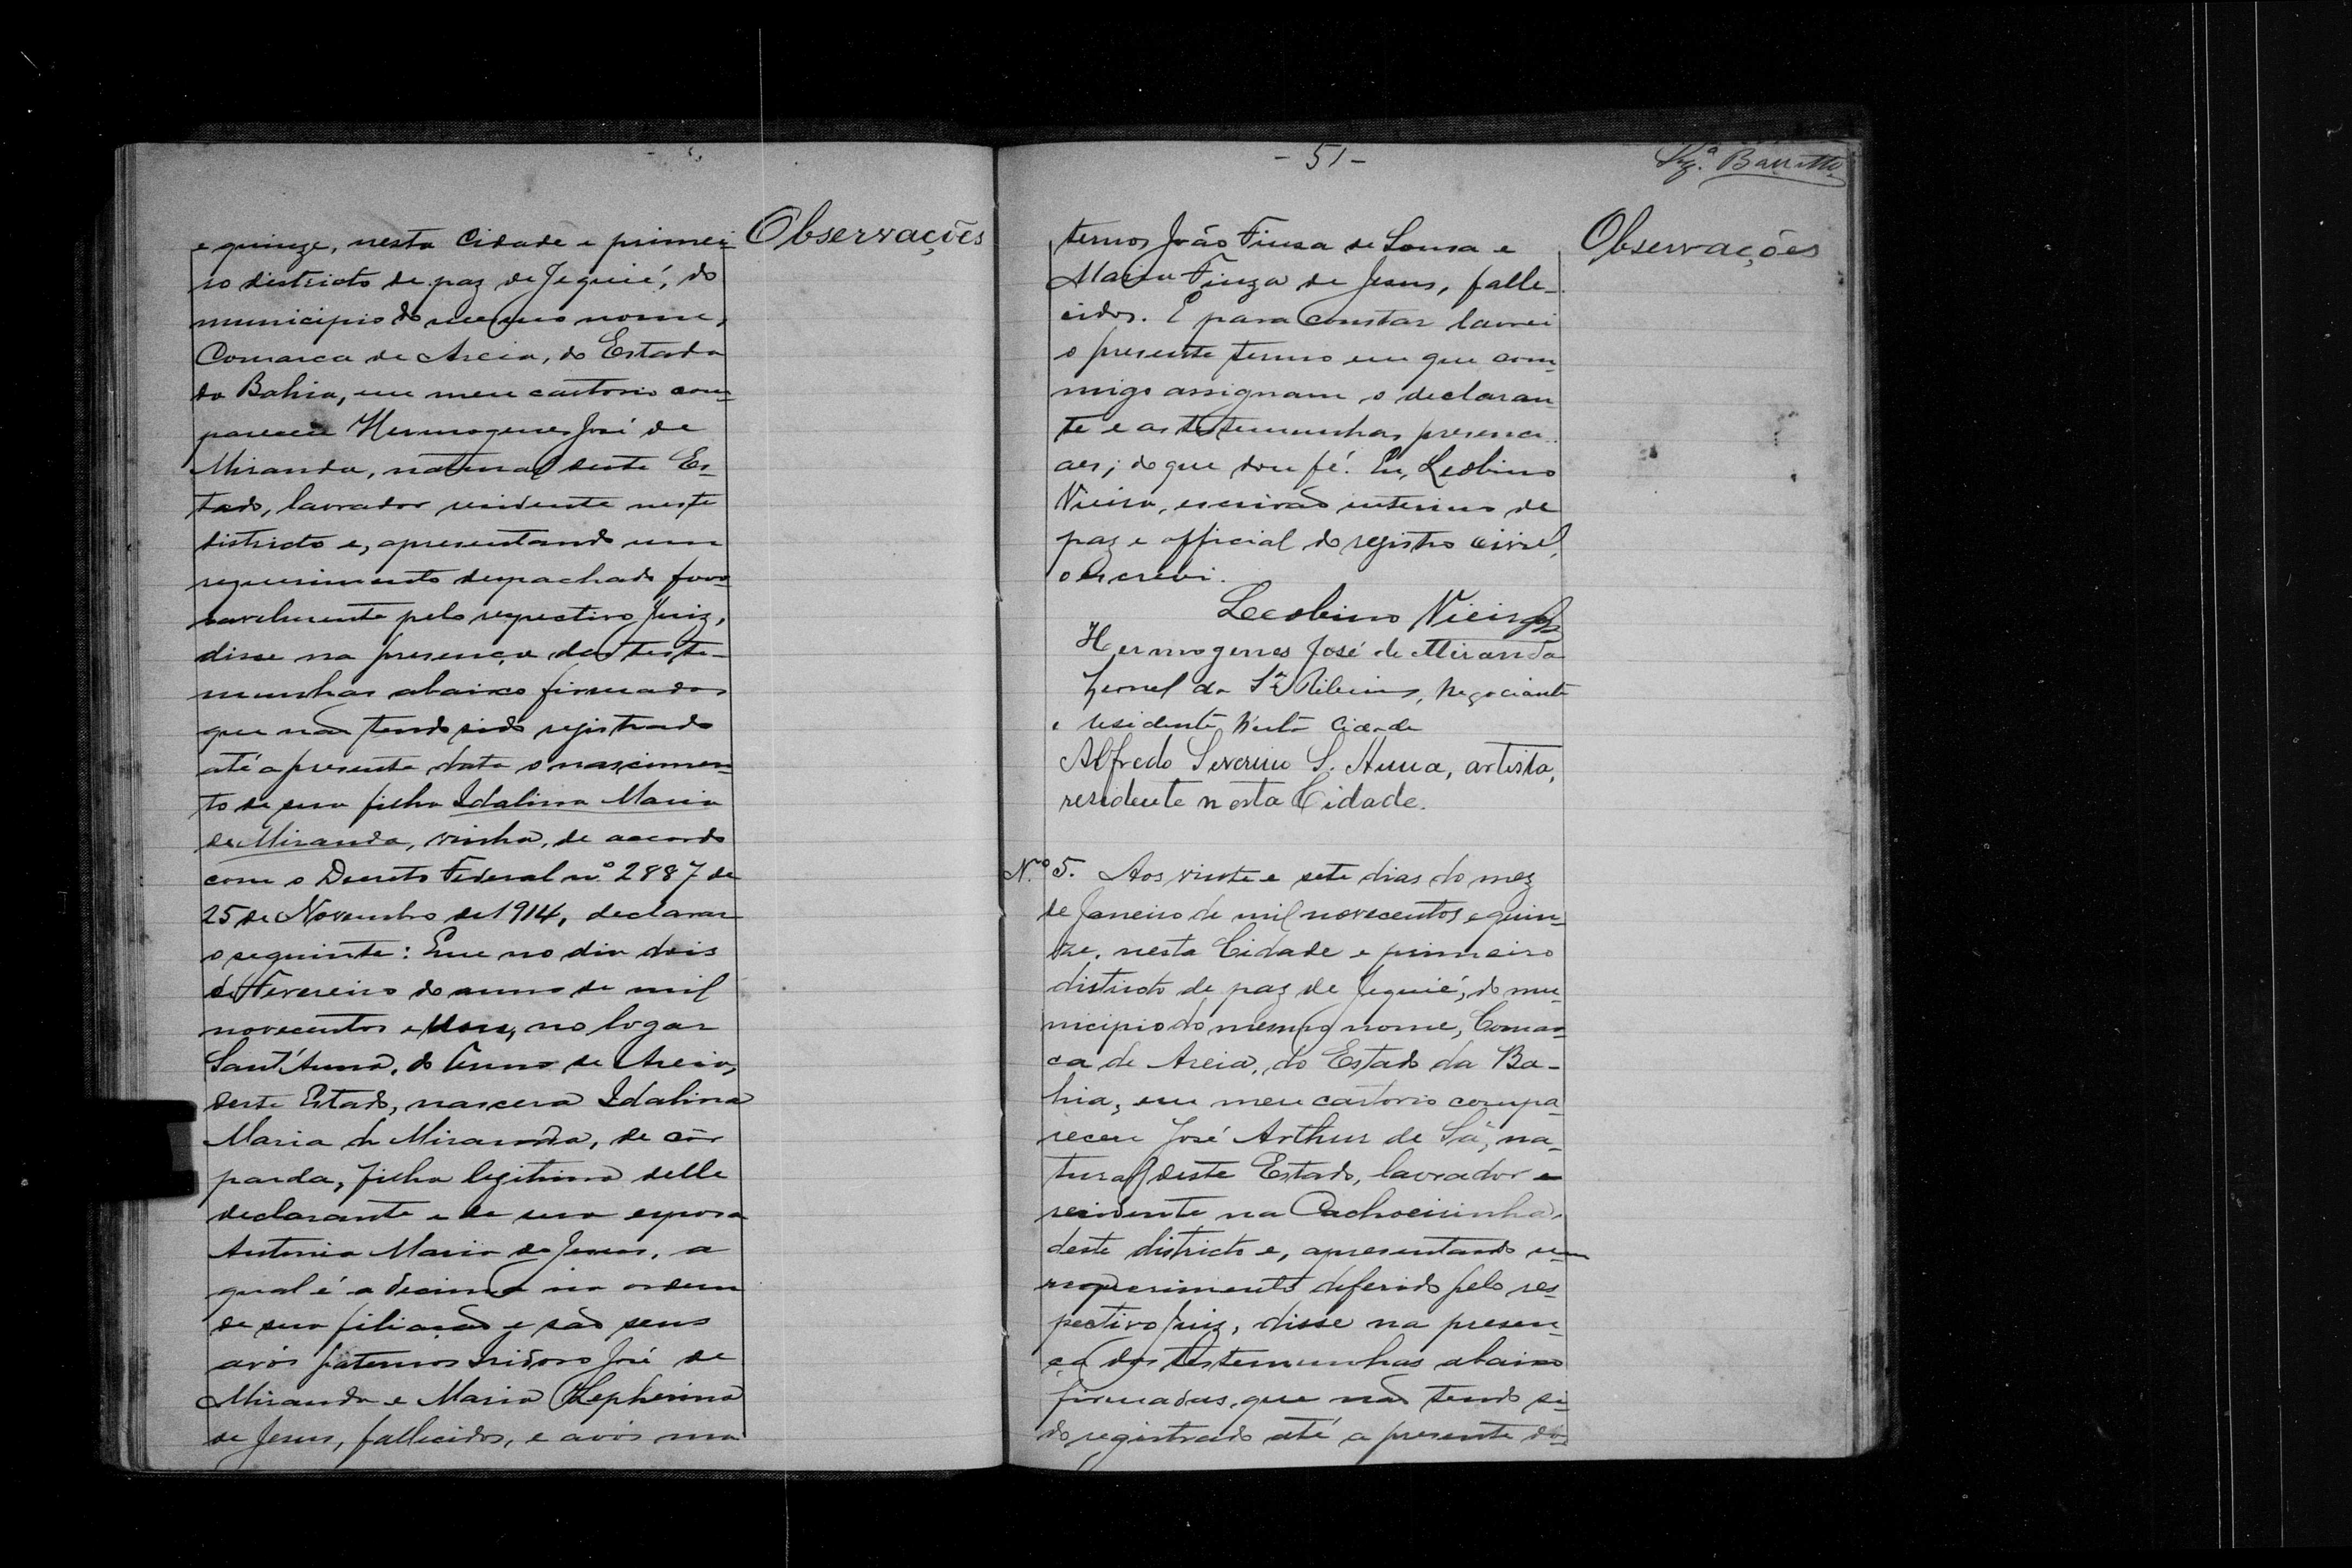 Observações
e quinze, nesta Cidade e primei-
ro districto de paz de Jequié, do
municipio do mesmo nome,
Comarca de Areia, do Estado
da Bahia, em meu cartorio com-
pareceu Hermogenes José de
Miranda, natural deste Es-
tado, lavrador residente neste
districto e, apresentando um
requerimento despachado favo-
ravelmente pelo respectivo Juiz,
disse na presença das teste-
munhas abaixo firmadas
que não tendo sido registrado
até a presente data o nascimen-
to de sua filha Idalina Maria
de Miranda, vinha, de accordo
com o Decreto Federal nº 2887 de
25 de Novembro de 1914, declarar
o seguinte: Que no dia dois
de Fevereiro do anno de mil
novecentos e, no logar
Sant'Anna, do termo de Areia,
deste Estado, nascera Idalina
Maria de Miranda, de côr
parda, filha legitima delle
declarante e de sua esposa
Antonia Maria de Jesus, a
qual é a decima na ordem
de sua filiação e são seus
avós paternos Izidoro José de
Miranda e Maria Zepherina
de Jesus, fallecidos, e avós ma
- 51 -
Barretto
Observações
ternos João Fiuza de Sousa e
Maria Fiuza de Jesus, falle-
cidos. E para constar lavrei
o presente termo em que com-
migo assignam o declaran-
te e as testemunhas presenci-
aes; do que dou fé. Eu, Leobino
Vieira, escrivão interino de
paz e official do registro civil,
o escrevi.
Leobino Vieira
Hermogenes José de Miranda
da Sª Ribeiro, Negociante
e residente n'esta Cidade
Alfredo Severino S. Anna, artista,
residente nesta Cidade.
N.º 5. Aos vinte e sete dias do mez
de Janeiro de mil novecentos e quin-
ze, nesta Cidade e primeiro
districto de paz de Jequié, do mu-
nicipio do mesmo nome, Comar-
ca de Areia, do Estado da Ba-
hia, em meu cartorio compa-
receu José Arthur de Sá, na-
tural deste Estado, lavrador e
residente na Cachoeirinha,
deste districto e, apresentando um
requerimento deferido pelo res-
pectivo Juiz, disse na presen-
ça das testemunhas abaixo
firmadas, que não tendo si-
do registrado até a presente da-